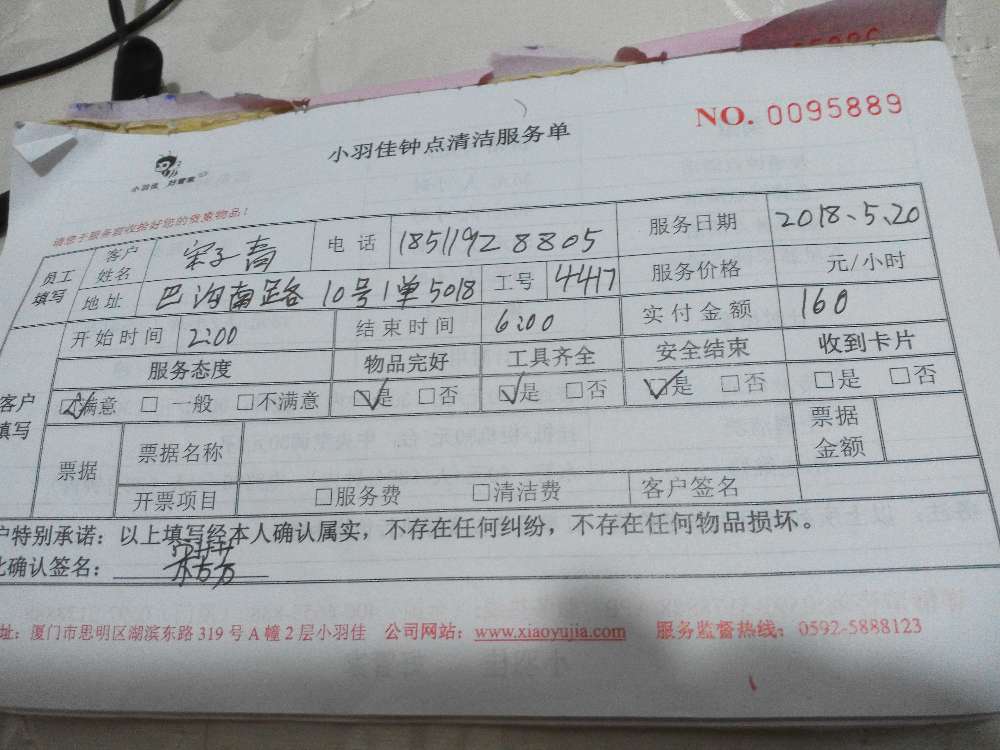 NO. 0095889
小羽佳钟点清洁服务单
小羽佳 好管家
请您于服务前收拾好您的贵重物品!
员工填写 客户姓名 宋子青 电话 18511928805 服务日期 2018、5、20
地址 巴沟南路10号1单5018 工号 4417 服务价格 元/小时
开始时间 2:00 结束时间 6:00 实付金额 160
客户填写 服务态度 物品完好 工具齐全 安全结束 收到卡片
☑满意 □ 一般 □不满意 ☑是 □否 ☑是 □否 ☑是 □否 □是 □否
票据 票据名称 票据金额
开票项目 □服务费 □清洁费 客户签名
户特别承诺：以上填写经本人确认属实，不存在任何纠纷，不存在任何物品损坏。
此确认签名：
址：厦门市思明区湖滨东路 319 号 A 幢 2 层小羽佳 公司网站：www.xiaoyujia.com 服务监督热线：0592-5888123